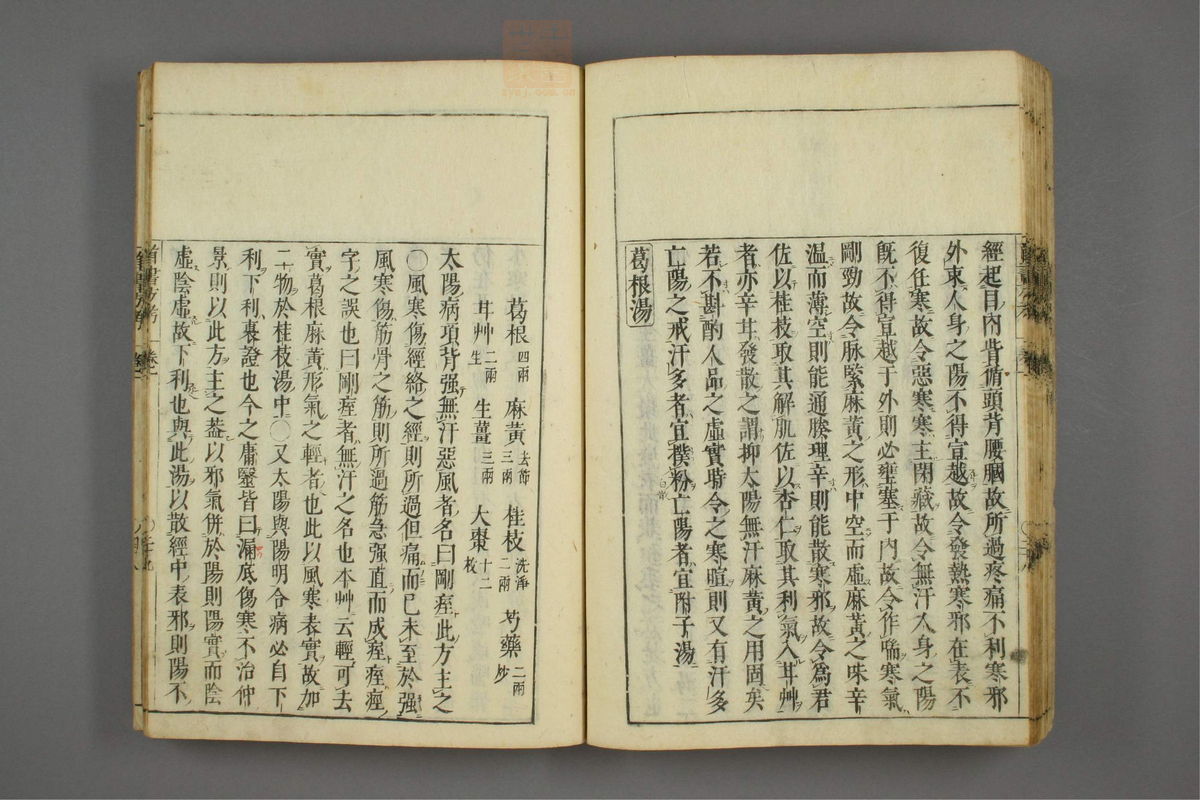 經起目內眥循頭背腰膕故所過疼痛不利寒邪
外束人身之陽不得宣越故令發熱寒邪在表不
復任寒故令惡寒寒主閉藏故令無汗人身之陽
既不得宣越于外則必壅塞于內故令作喘寒氣
剛勁故令脉緊麻黃之形中空而虛麻黃之味辛
溫而薄空則能通腠理辛則能散寒邪故令為君
佐以桂枝取其解肌佐以杏仁取其利氣入甘艸
者亦辛甘發散之謂抑太陽無汗麻黃之用固矣
若不斟酌人品之虛實時令之寒暄則又有汗多
亡陽之戒汗多者宜撲粉亡陽者宜附子湯
葛根湯
葛根四兩 麻黃去節三兩 桂枝洗淨二兩 芍藥二兩炒
甘艸二兩 生 生薑三兩 大棗十二枚
太陽病項背强無汗惡風者名曰剛痙此方主之
〇風寒傷經絡之經則所過但痛而已未至於强
風寒傷筋骨之筋則所過筋急强直而成痙痙痙
字之誤也曰剛痙者無汗之名也本艸云輕可去
實葛根麻黃形氣之輕者也此以風寒表實故加
二物於桂枝湯中〇又太陽與陽明合病必自下
利下利裏證也今之庸醫皆曰漏底傷寒不治仲
景則以此方主之蓋以邪氣併於陽則陽實而陰
虛陰虛故下利也與此湯以散經中表邪則陽不